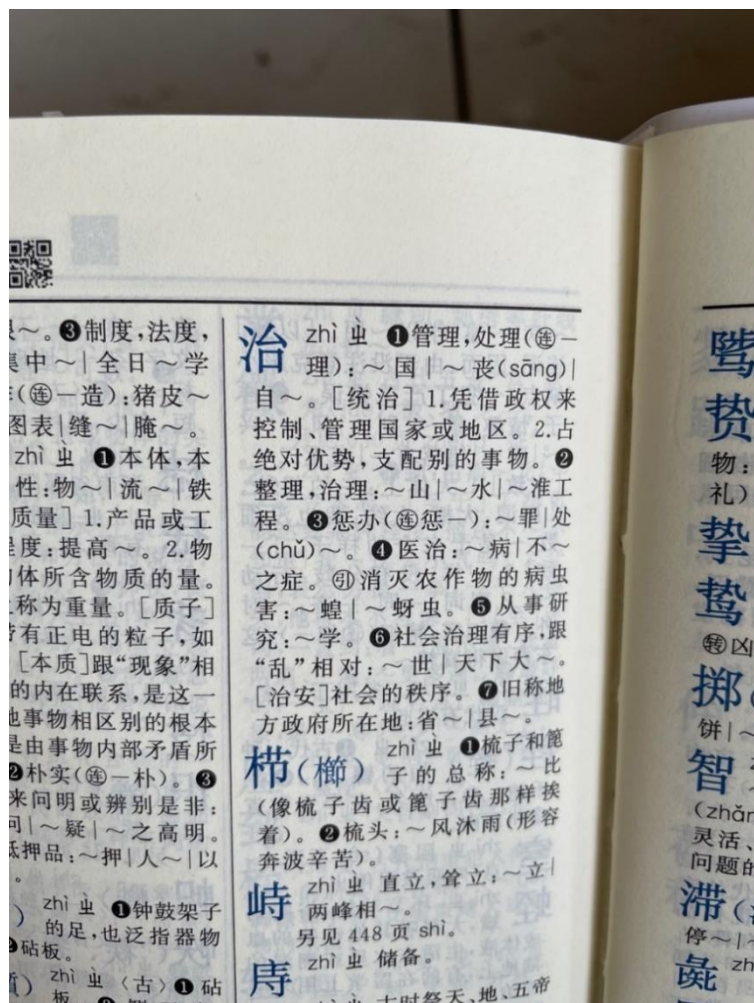 ～。❸制度,法度,
集中～|全日～学
(㊣一造):猪皮～
图表|缝～|腌～。
zhì ㄓˋ ❶本体,本
性:物～|流～|铁
质量］1.产品或工
程度:提高～。2.物
体所含物质的量。
称为重量。［质子］
带有正电的粒子,如
［本质］跟“现象”相
的内在联系,是这一
他事物相区别的根本
是由事物内部矛盾所
❷朴实(㊣一朴)。❸
来问明或辨别是非:
问|～疑|～之高明。
抵押品:～押|人～|以
。
zhì ㄓˋ ❶钟鼓架子
的足,也泛指器物
❷砧板。
zhì ㄓˋ 〈古〉❶砧
板。
治 zhì ㄓˋ ❶管理,处理(㊣一
理):～国|～丧(sāng)|
自～。［统治］1.凭借政权来
控制、管理国家或地区。2.占
绝对优势,支配别的事物。❷
整理,治理:～山|～水|～淮工
程。❸惩办(㊣惩一):～罪|处
(chǔ)～。❹医治:～病|不～
之症。㊁消灭农作物的病虫
害:～蝗|～蚜虫。❺从事研
究:～学。❻社会治理有序,跟
“乱”相对:～世|天下大～。
［治安］社会的秩序。❼旧称地
方政府所在地:省～|县～。
栉(櫛) zhì ㄓˋ ❶梳子和篦
子的总称:～比
(像梳子齿或篦子齿那样挨
着)。❷梳头:～风沐雨(形容
奔波辛苦)。
峙 zhì ㄓˋ 直立,耸立:～立|
两峰相～。
另见448页 shì。
庤 zhì ㄓˋ 储备。
古时祭天、地、五帝
骘
贽
物:
礼)
挚
鸷
㊣凶
掷(
饼|～
智
(zhǎn
灵活、
问题的
滞(
停～|～
彘 zh